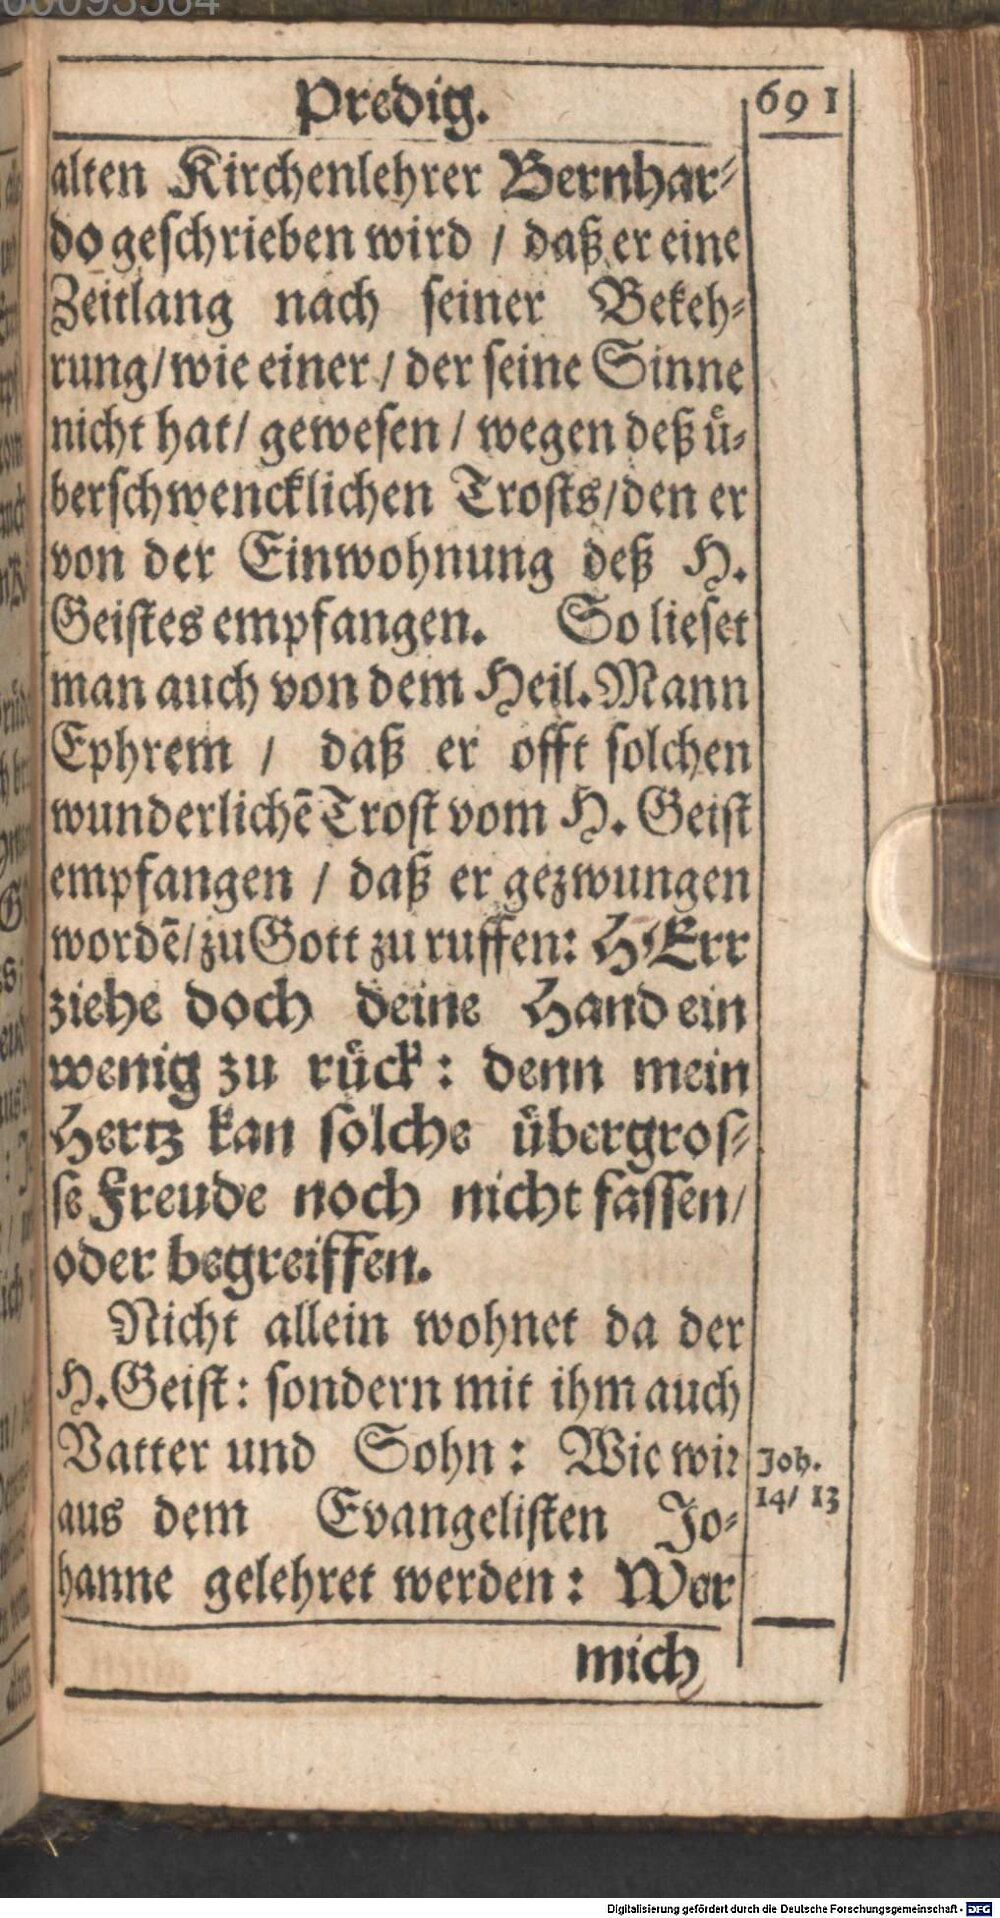 Predig.
691
alten Kirchenlehrer Bernhar-
do geschrieben wird / daß er eine
Zeitlang nach seiner Bekeh-
rung/ wie einer / der seine Sinne
nicht hat/ gewesen / wegen deß uͤ-
berschwencklichen Trosts/ den er
von der Einwohnung deß H.
Geistes empfangen. So lieset
man auch von dem Heil. Mann
Ephrem / daß er offt solchen
wunderlichē Trost vom H. Geist
empfangen / daß er gezwungen
wordē/ zu Gott zu ruffen: HErr
ziehe doch deine Hand ein
wenig zu ruͤck: denn mein
Hertz kan solche uͤbergros-
se Freude noch nicht fassen/
oder begreiffen.
Nicht allein wohnet da der
H. Geist: sondern mit ihm auch
Vatter und Sohn: Wie wir
aus dem Evangelisten Jo-
hanne gelehret werden: Wer
Joh.
14/ 13
mich
Digitalisierung gefördert durch die Deutsche Forschungsgemeinschaft - DFG